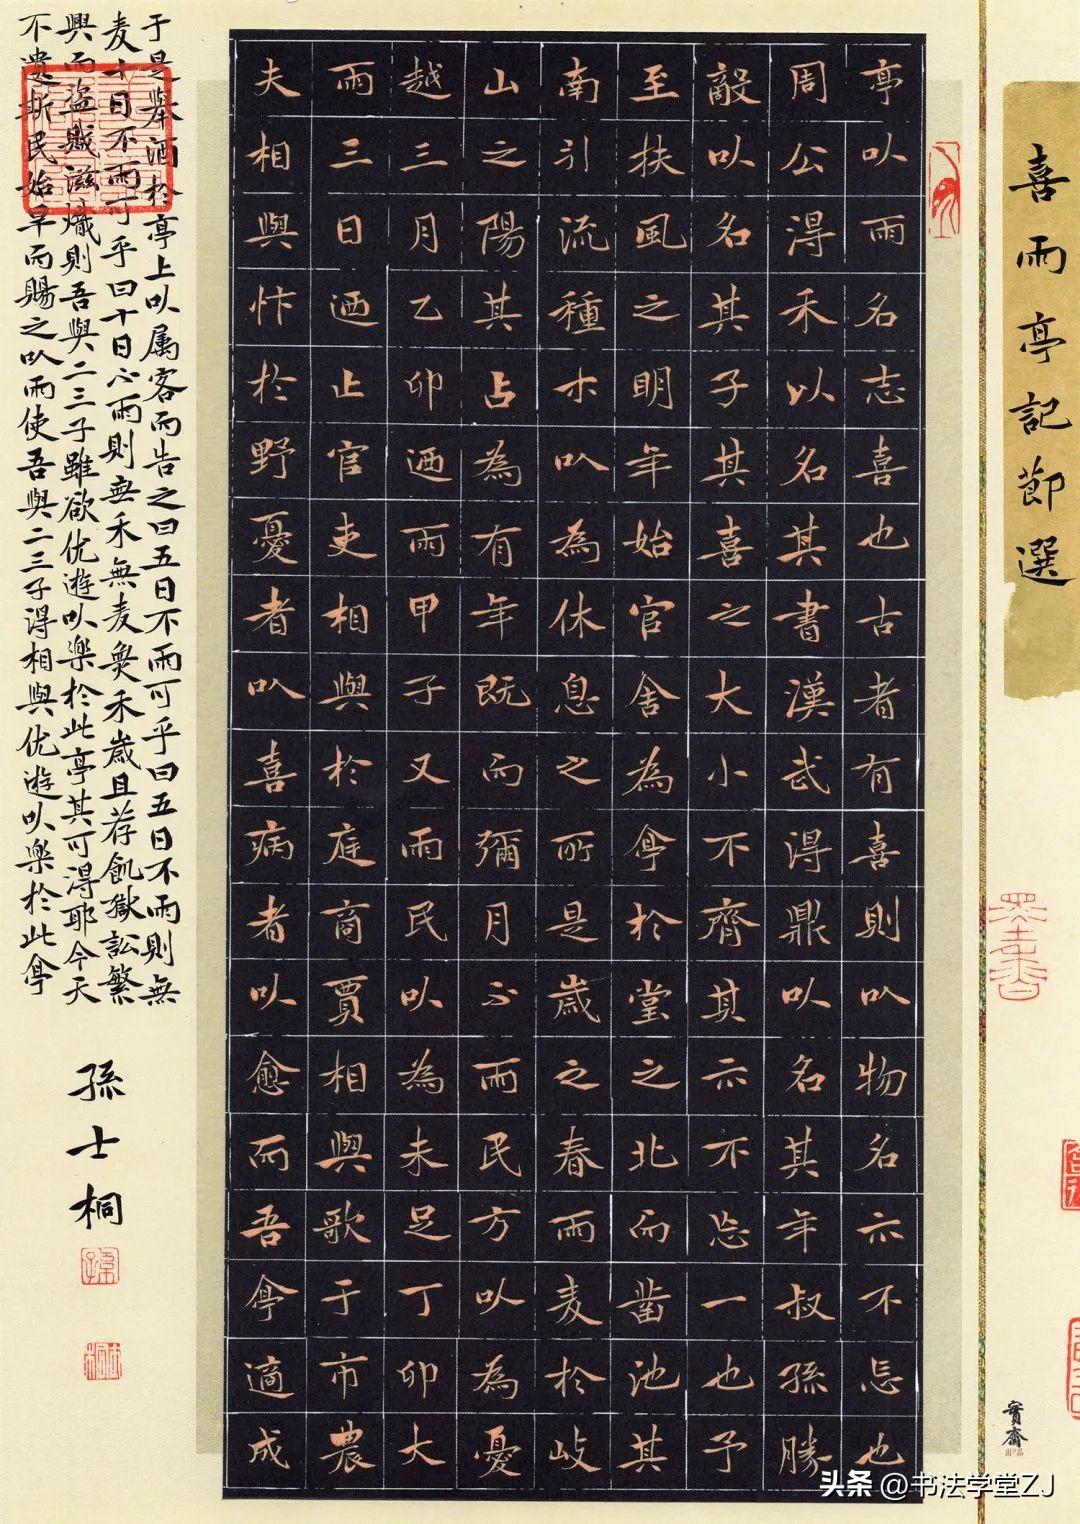 喜雨亭記節選
亭以雨名志喜也古者有喜則以物名示不忘也
周公得禾以名其書漢武得鼎以名其年叔孫勝
敵以名其子其喜之大小不齊其示不忘一也予
至扶風之明年始官舍為亭於堂之北而鑿池其
南引流種木以為休息之所是歲之春雨麦於岐
山之陽其占為有年既而彌月不雨民方以為憂
越三月乙卯迺雨甲子又雨民以為未足丁卯大
雨三日迺止官吏相與於庭商賈相與歌于市農
夫相與忭於野憂者以喜病者以愈而吾亭適成
于是舉酒於亭上以属客而告之曰五日不雨可乎曰五日不雨則無
麦十日不雨可乎曰十日不雨則無禾無麦無禾歲且荐飢獄訟繁
興而盜賊滋熾則吾與二三子雖欲优遊以樂於此亭其可得耶今天
不遺斯民始旱而賜之以雨使吾與二三子得相與优遊以樂於此亭
孫士桐
頭条 @书法学堂ZJ